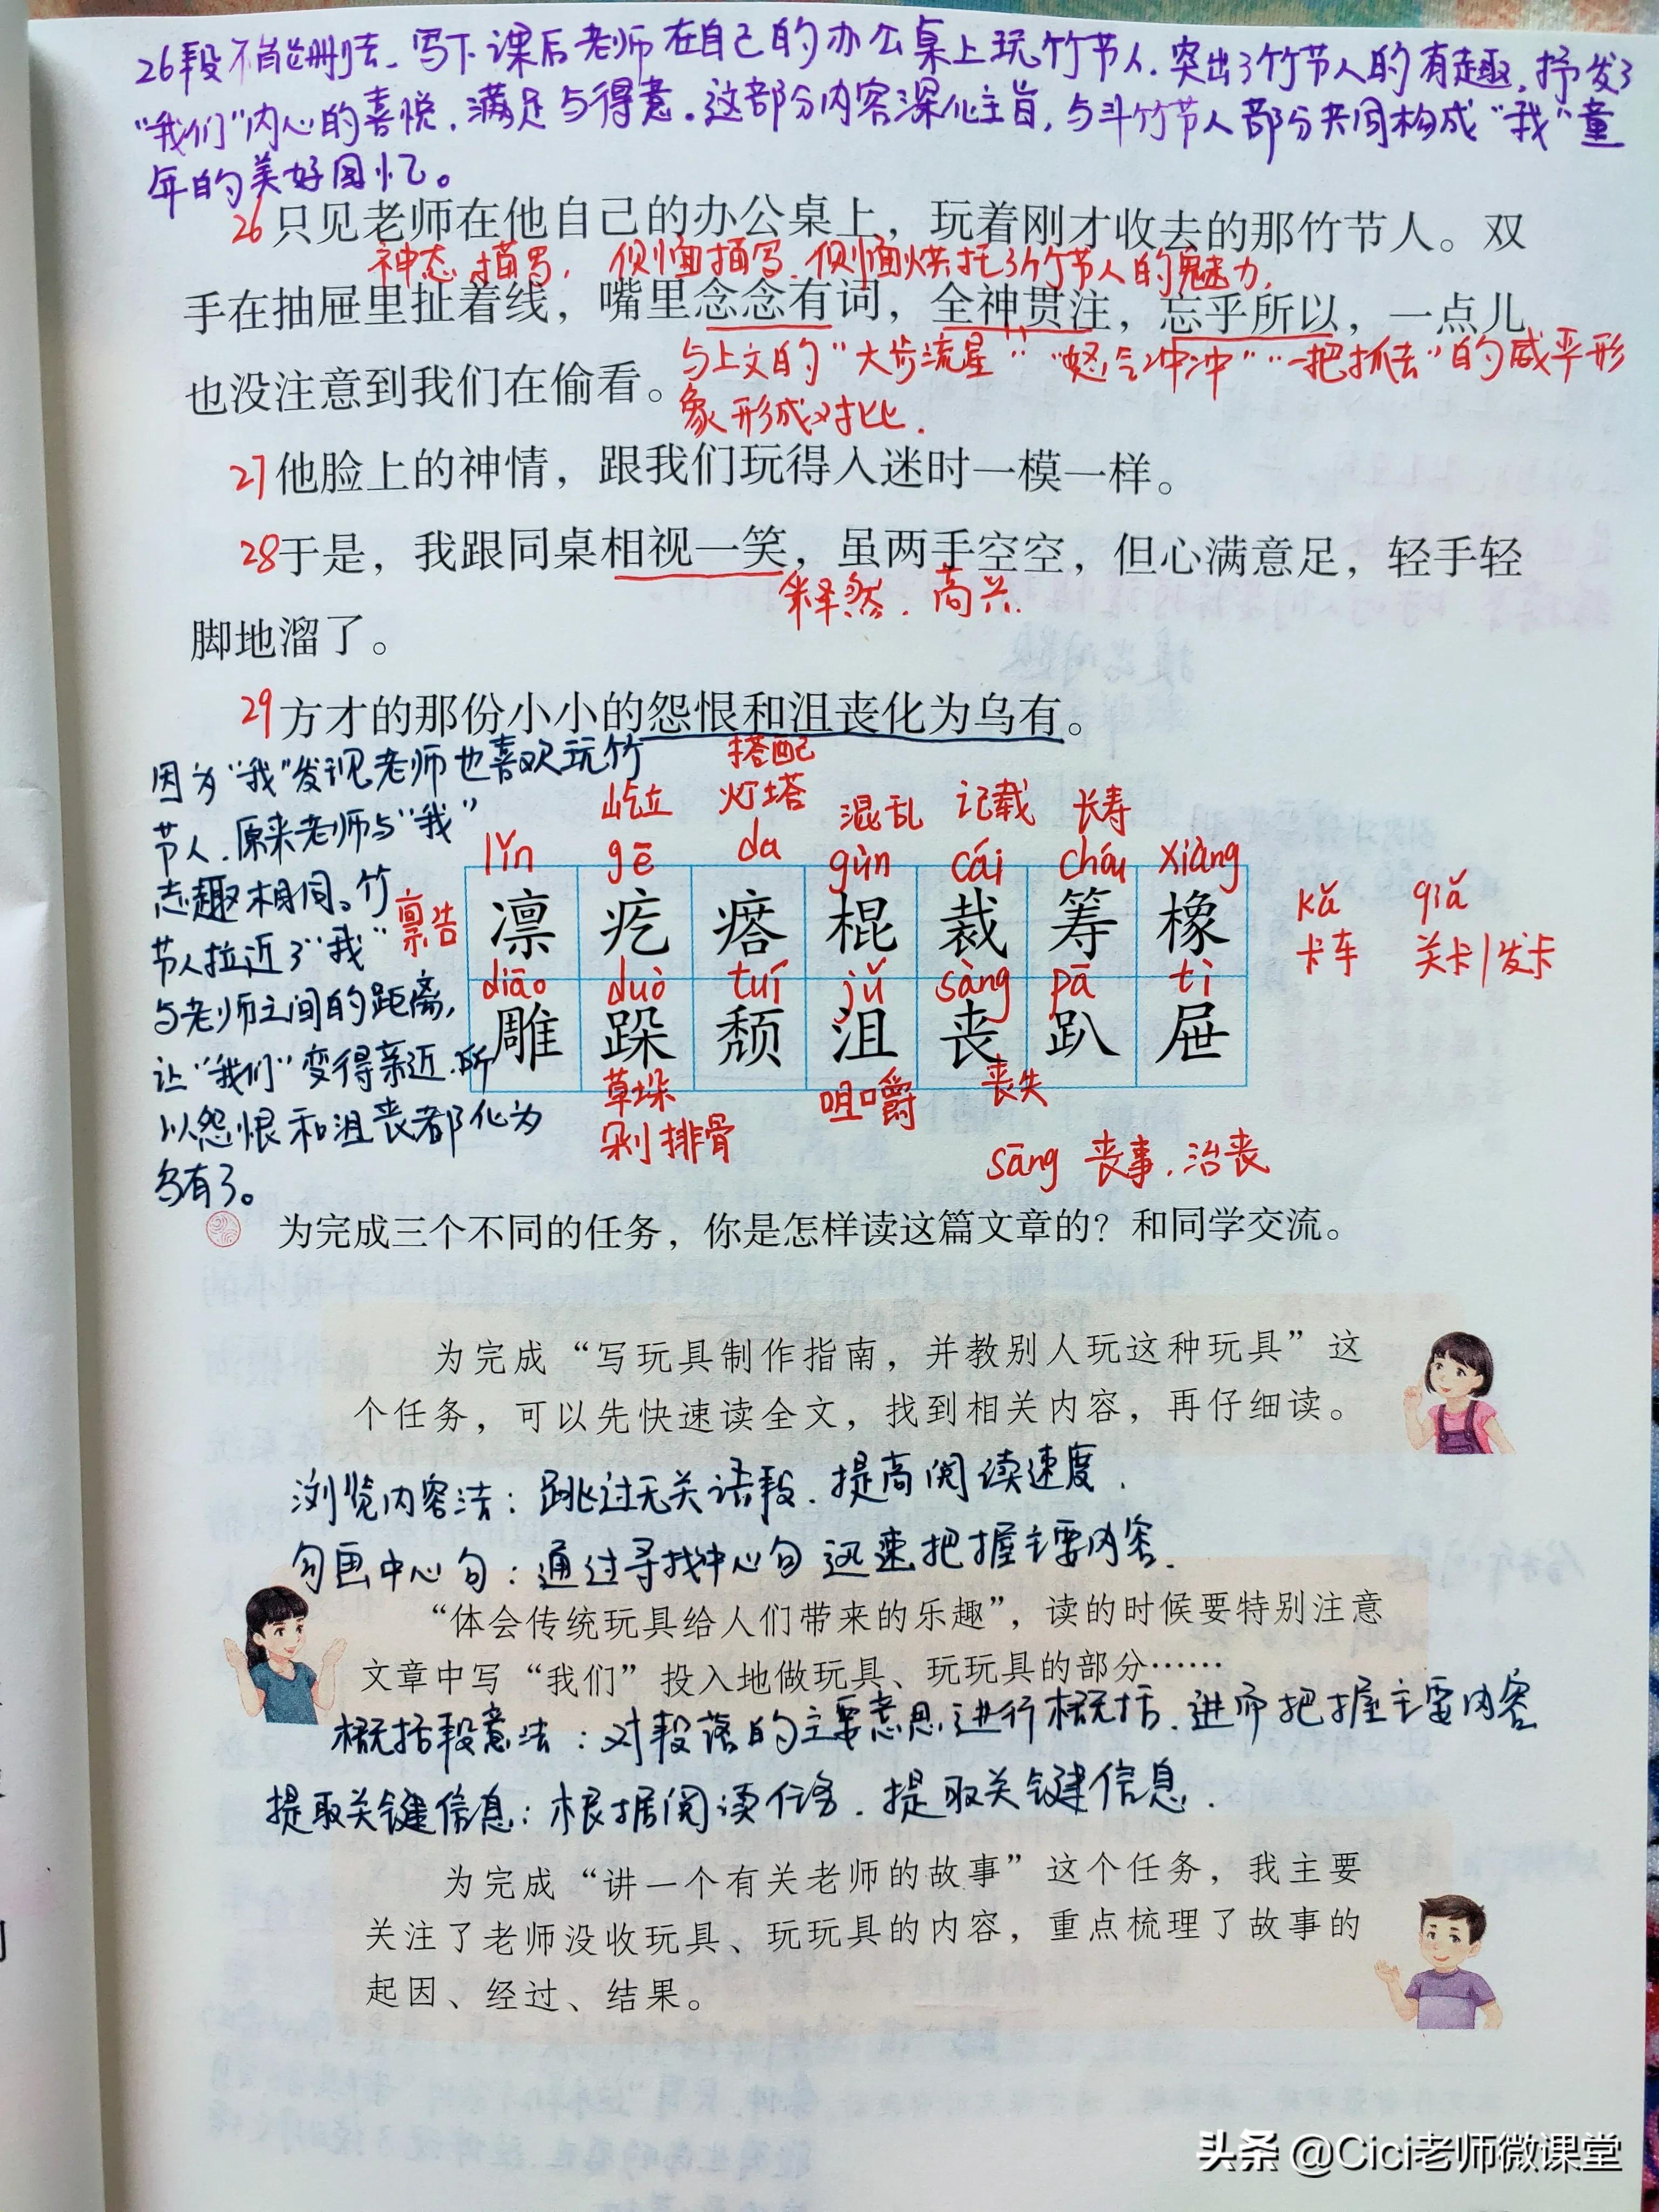 26段不能删去.写下课后老师在自己的办公桌上玩竹节人.突出了竹节人的有趣,抒发了
“我们”内心的喜悦,满足与得意。这部分内容深化主旨,与斗竹节人部分共同构成“我”童
年的美好回忆。
26 只见老师在他自己的办公桌上，玩着刚才收去的那竹节人。双
神态描写, 侧面描写.侧面烘托了竹节人的魅力,
手在抽屉里扯着线，嘴里念念有词，全神贯注，忘乎所以，一点儿
与上文的“大步流星”“怒气冲冲”“一把抓去”的威严形
也没注意到我们在偷看。
象形成对比.
27 他脸上的神情，跟我们玩得入迷时一模一样。
28 于是，我跟同桌相视一笑，虽两手空空，但心满意足，轻手轻
释然.高兴.
脚地溜了。
29 方才的那份小小的怨恨和沮丧化为乌有。
因为“我”发现老师也喜欢玩竹
节人.原来老师与“我”
志趣相同。竹
节人拉近了“我”
与老师之间的距离,
让“我们”变得亲近.所
以怨恨和沮丧都化为
乌有了。
搭配
屹立 灯塔 混乱 记载 长寿
lǐn gē da gùn cái chóu xiàng
禀告
凛 疙 瘩 棍 裁 筹 橡
kǎ qiǎ
卡车 关卡/发卡
diāo duò tuí jǔ sàng pā tì
雕 跺 颓 沮 丧 趴 屉
草垛 咀嚼 丧失
剁排骨
sāng 丧事.治丧
为完成三个不同的任务，你是怎样读这篇文章的？和同学交流。
为完成“写玩具制作指南，并教别人玩这种玩具”这
个任务，可以先快速读全文，找到相关内容，再仔细读。
浏览内容法：跳过无关语段.提高阅读速度.
勾画中心句：通过寻找中心句迅速把握主要内容.
“体会传统玩具给人们带来的乐趣”，读的时候要特别注意
文章中写“我们”投入地做玩具、玩玩具的部分……
概括段意法：对段落的主要意思进行概括.进而把握主要内容
提取关键信息：根据阅读任务.提取关键信息.
为完成“讲一个有关老师的故事”这个任务，我主要
关注了老师没收玩具、玩玩具的内容，重点梳理了故事的
起因、经过、结果。
头条 @Cici老师微课堂